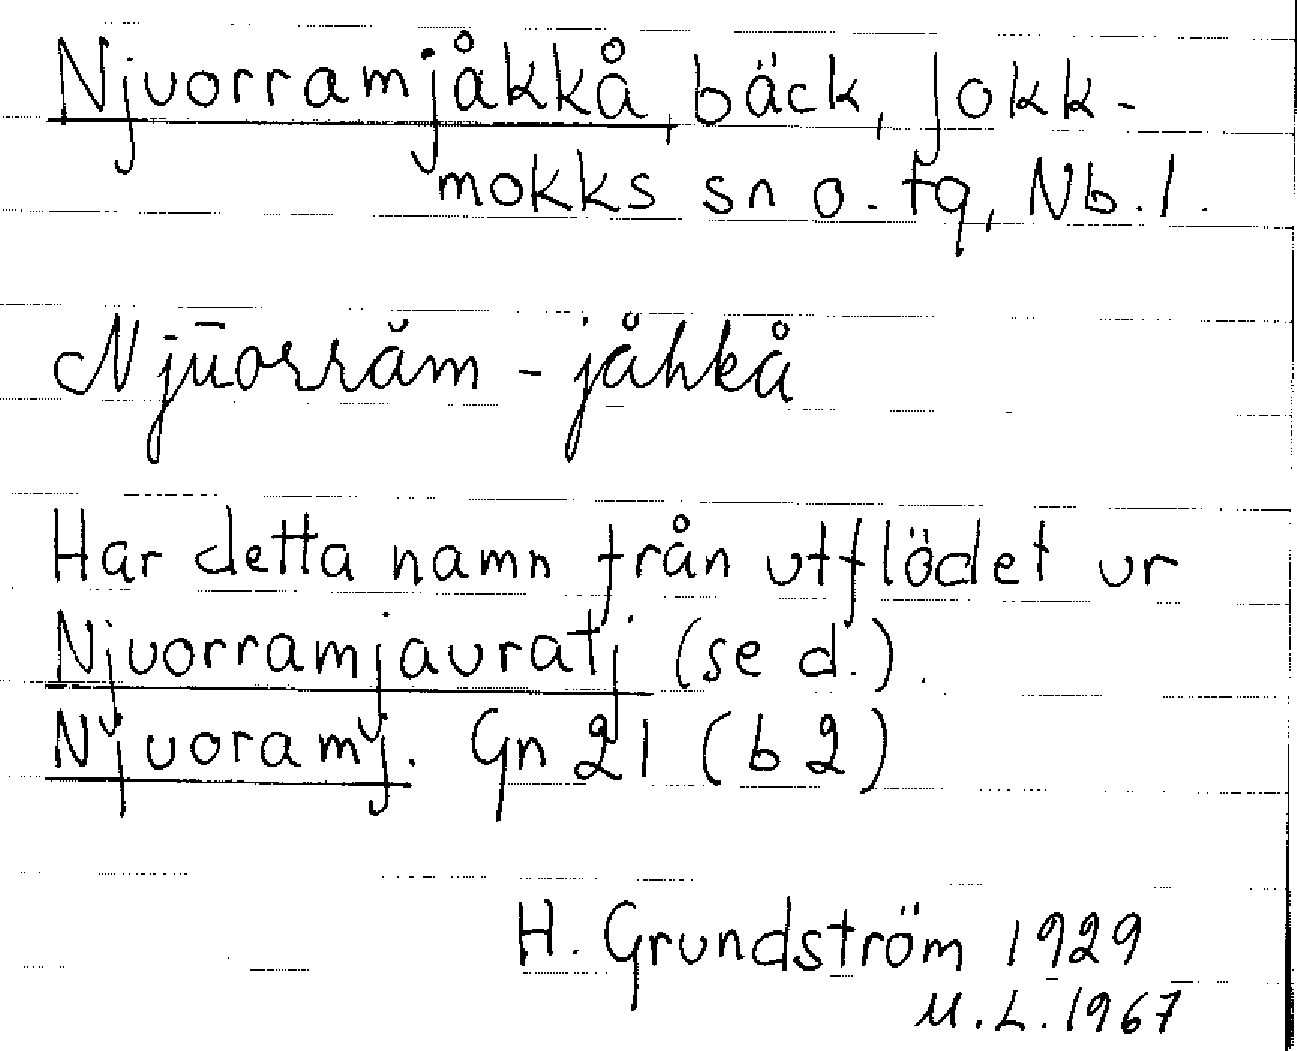 Njuorramjåkkå, bäck, Jokk-
mokks sn o. tg, Nb. l.
Njūorrăm-jåhkå
Har detta namn från utflödet ur
Njuorramjauratj (se d.).
Njuoramj. Gn 21 (b 2)
H. Grundström 1929
U. L. 1967